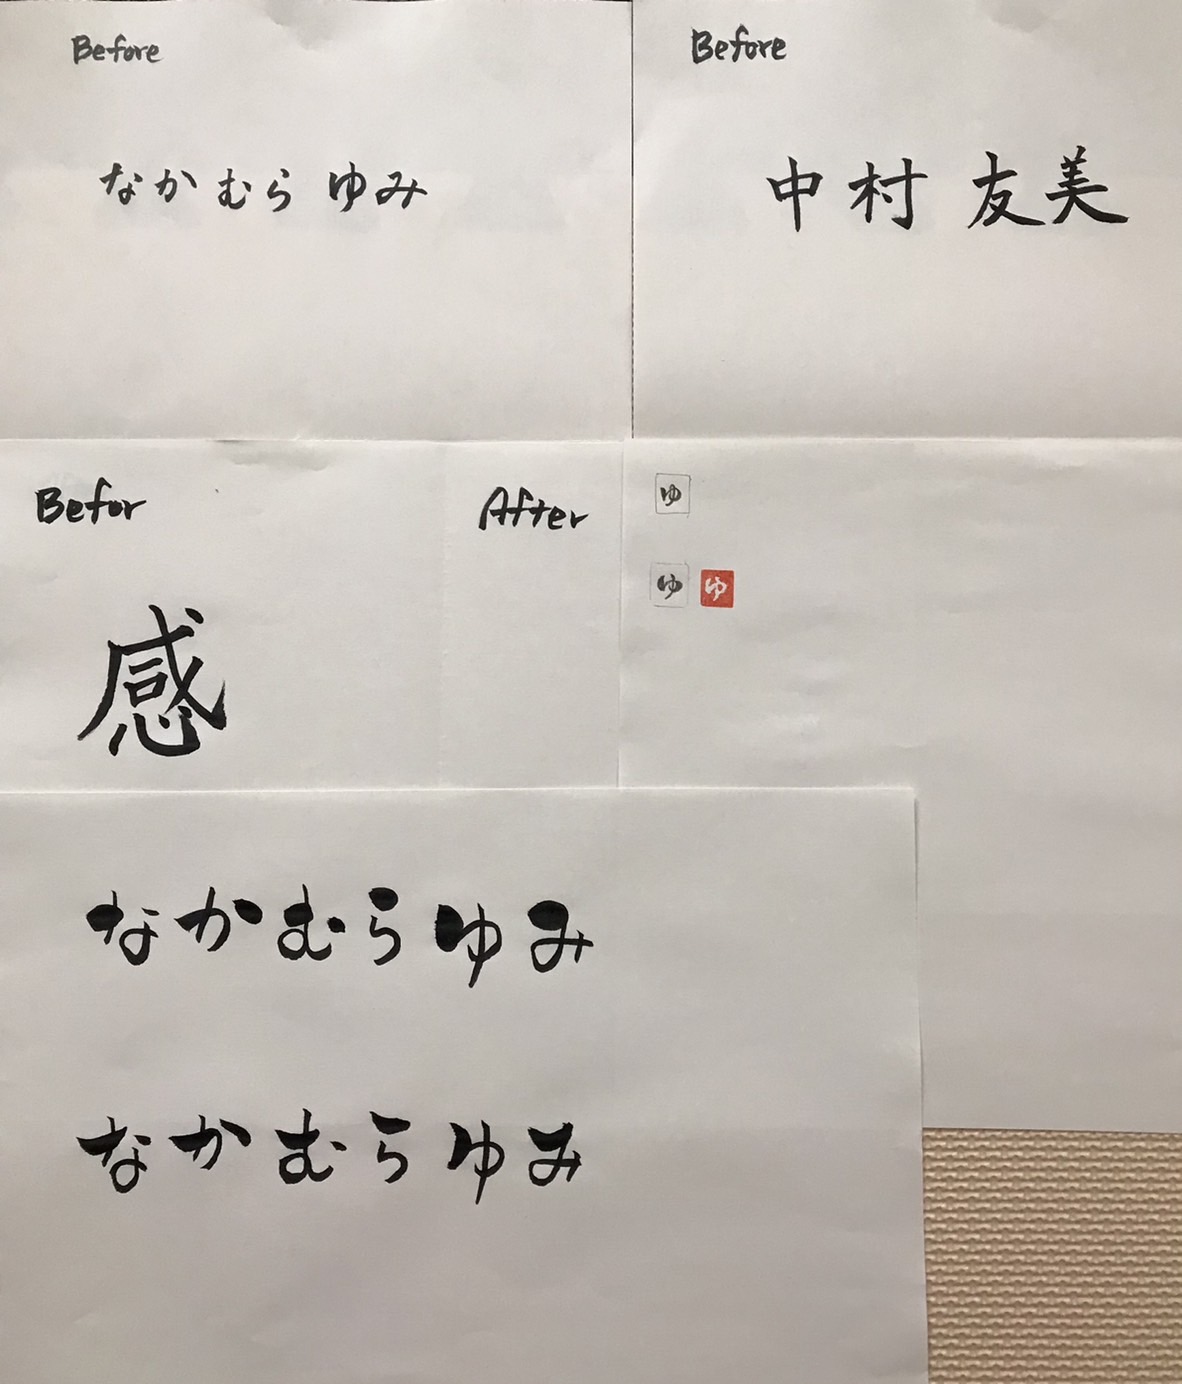 Before
なかむら ゆみ
Before
中村 友美
Befor
感
After
ゆ
ゆ ゆ
なかむらゆみ
なかむらゆみ